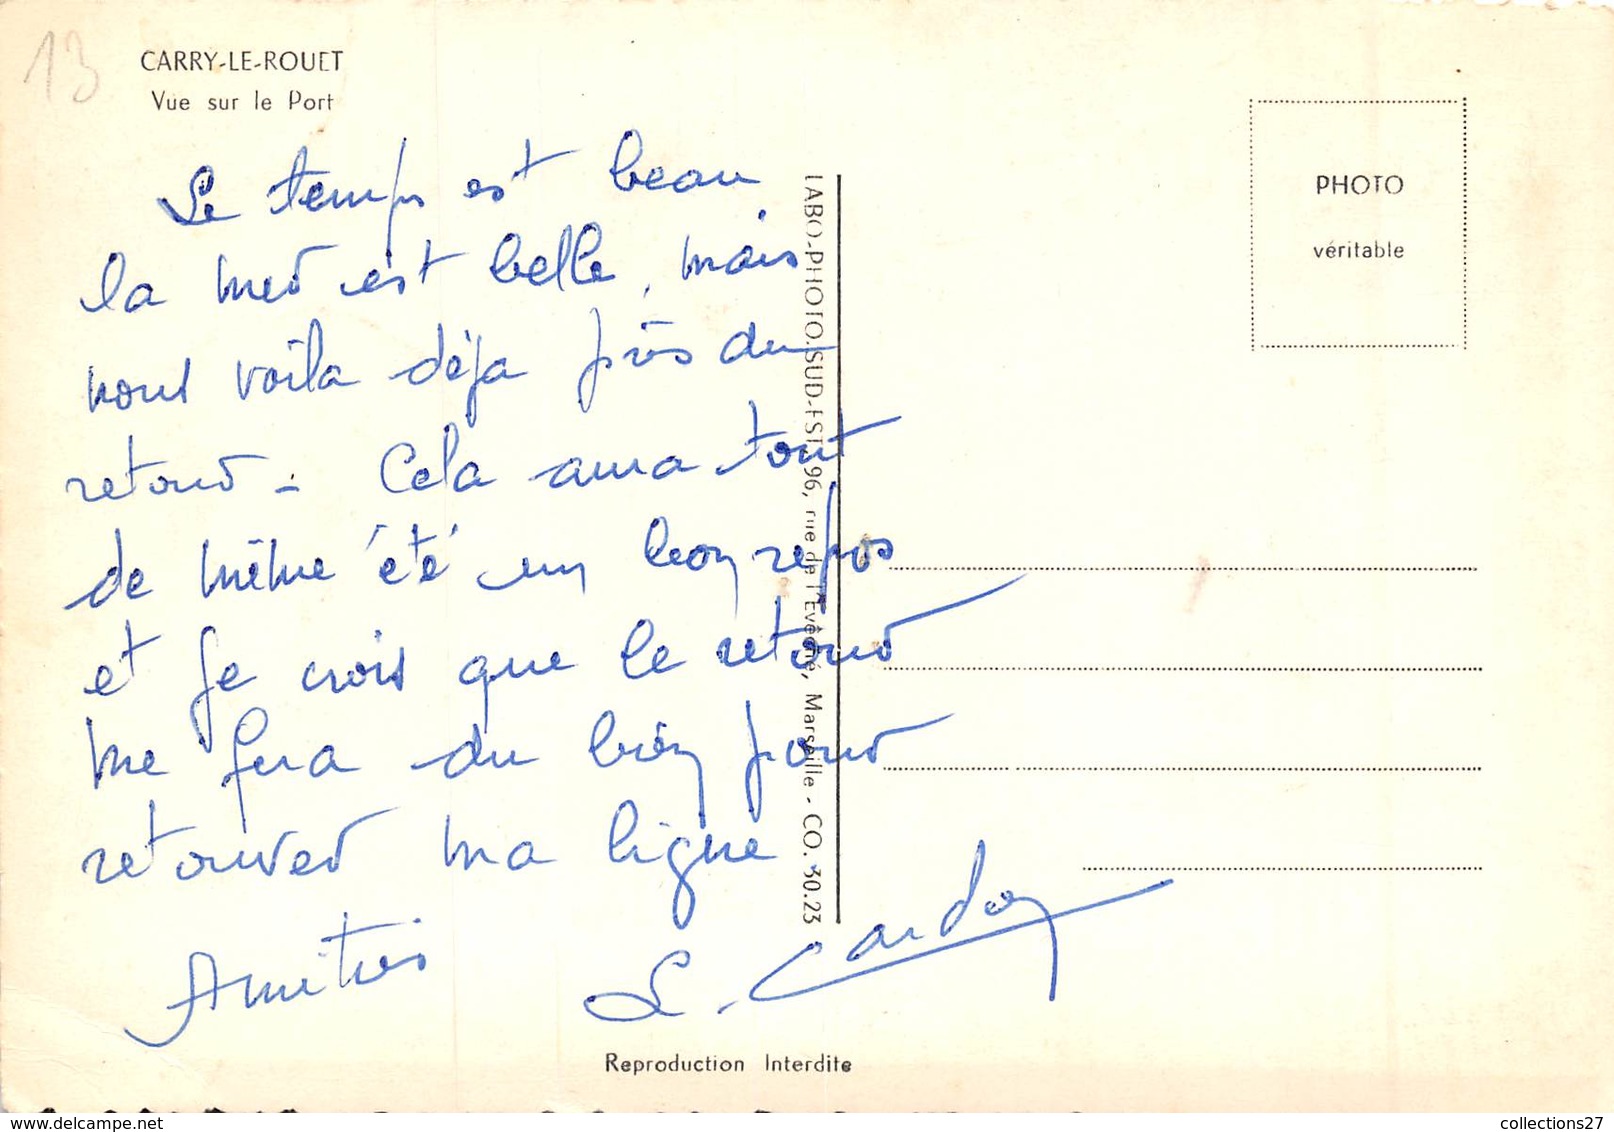 13
CARRY-LE-ROUET
Vue sur le Port
Le temps est beau
la mer est belle, mais
nous voila déja près du
retour - Cela aura tout
de même été un bon repos
et je crois que le retour
me fera du bien pour
retrouver ma ligne
Amitiés
L. Cardon
LABO-PHOTO-SUD-EST, 96, rue de l'Evêché, Marseille - CO. 30.23
PHOTO
véritable
Reproduction Interdite
collections27